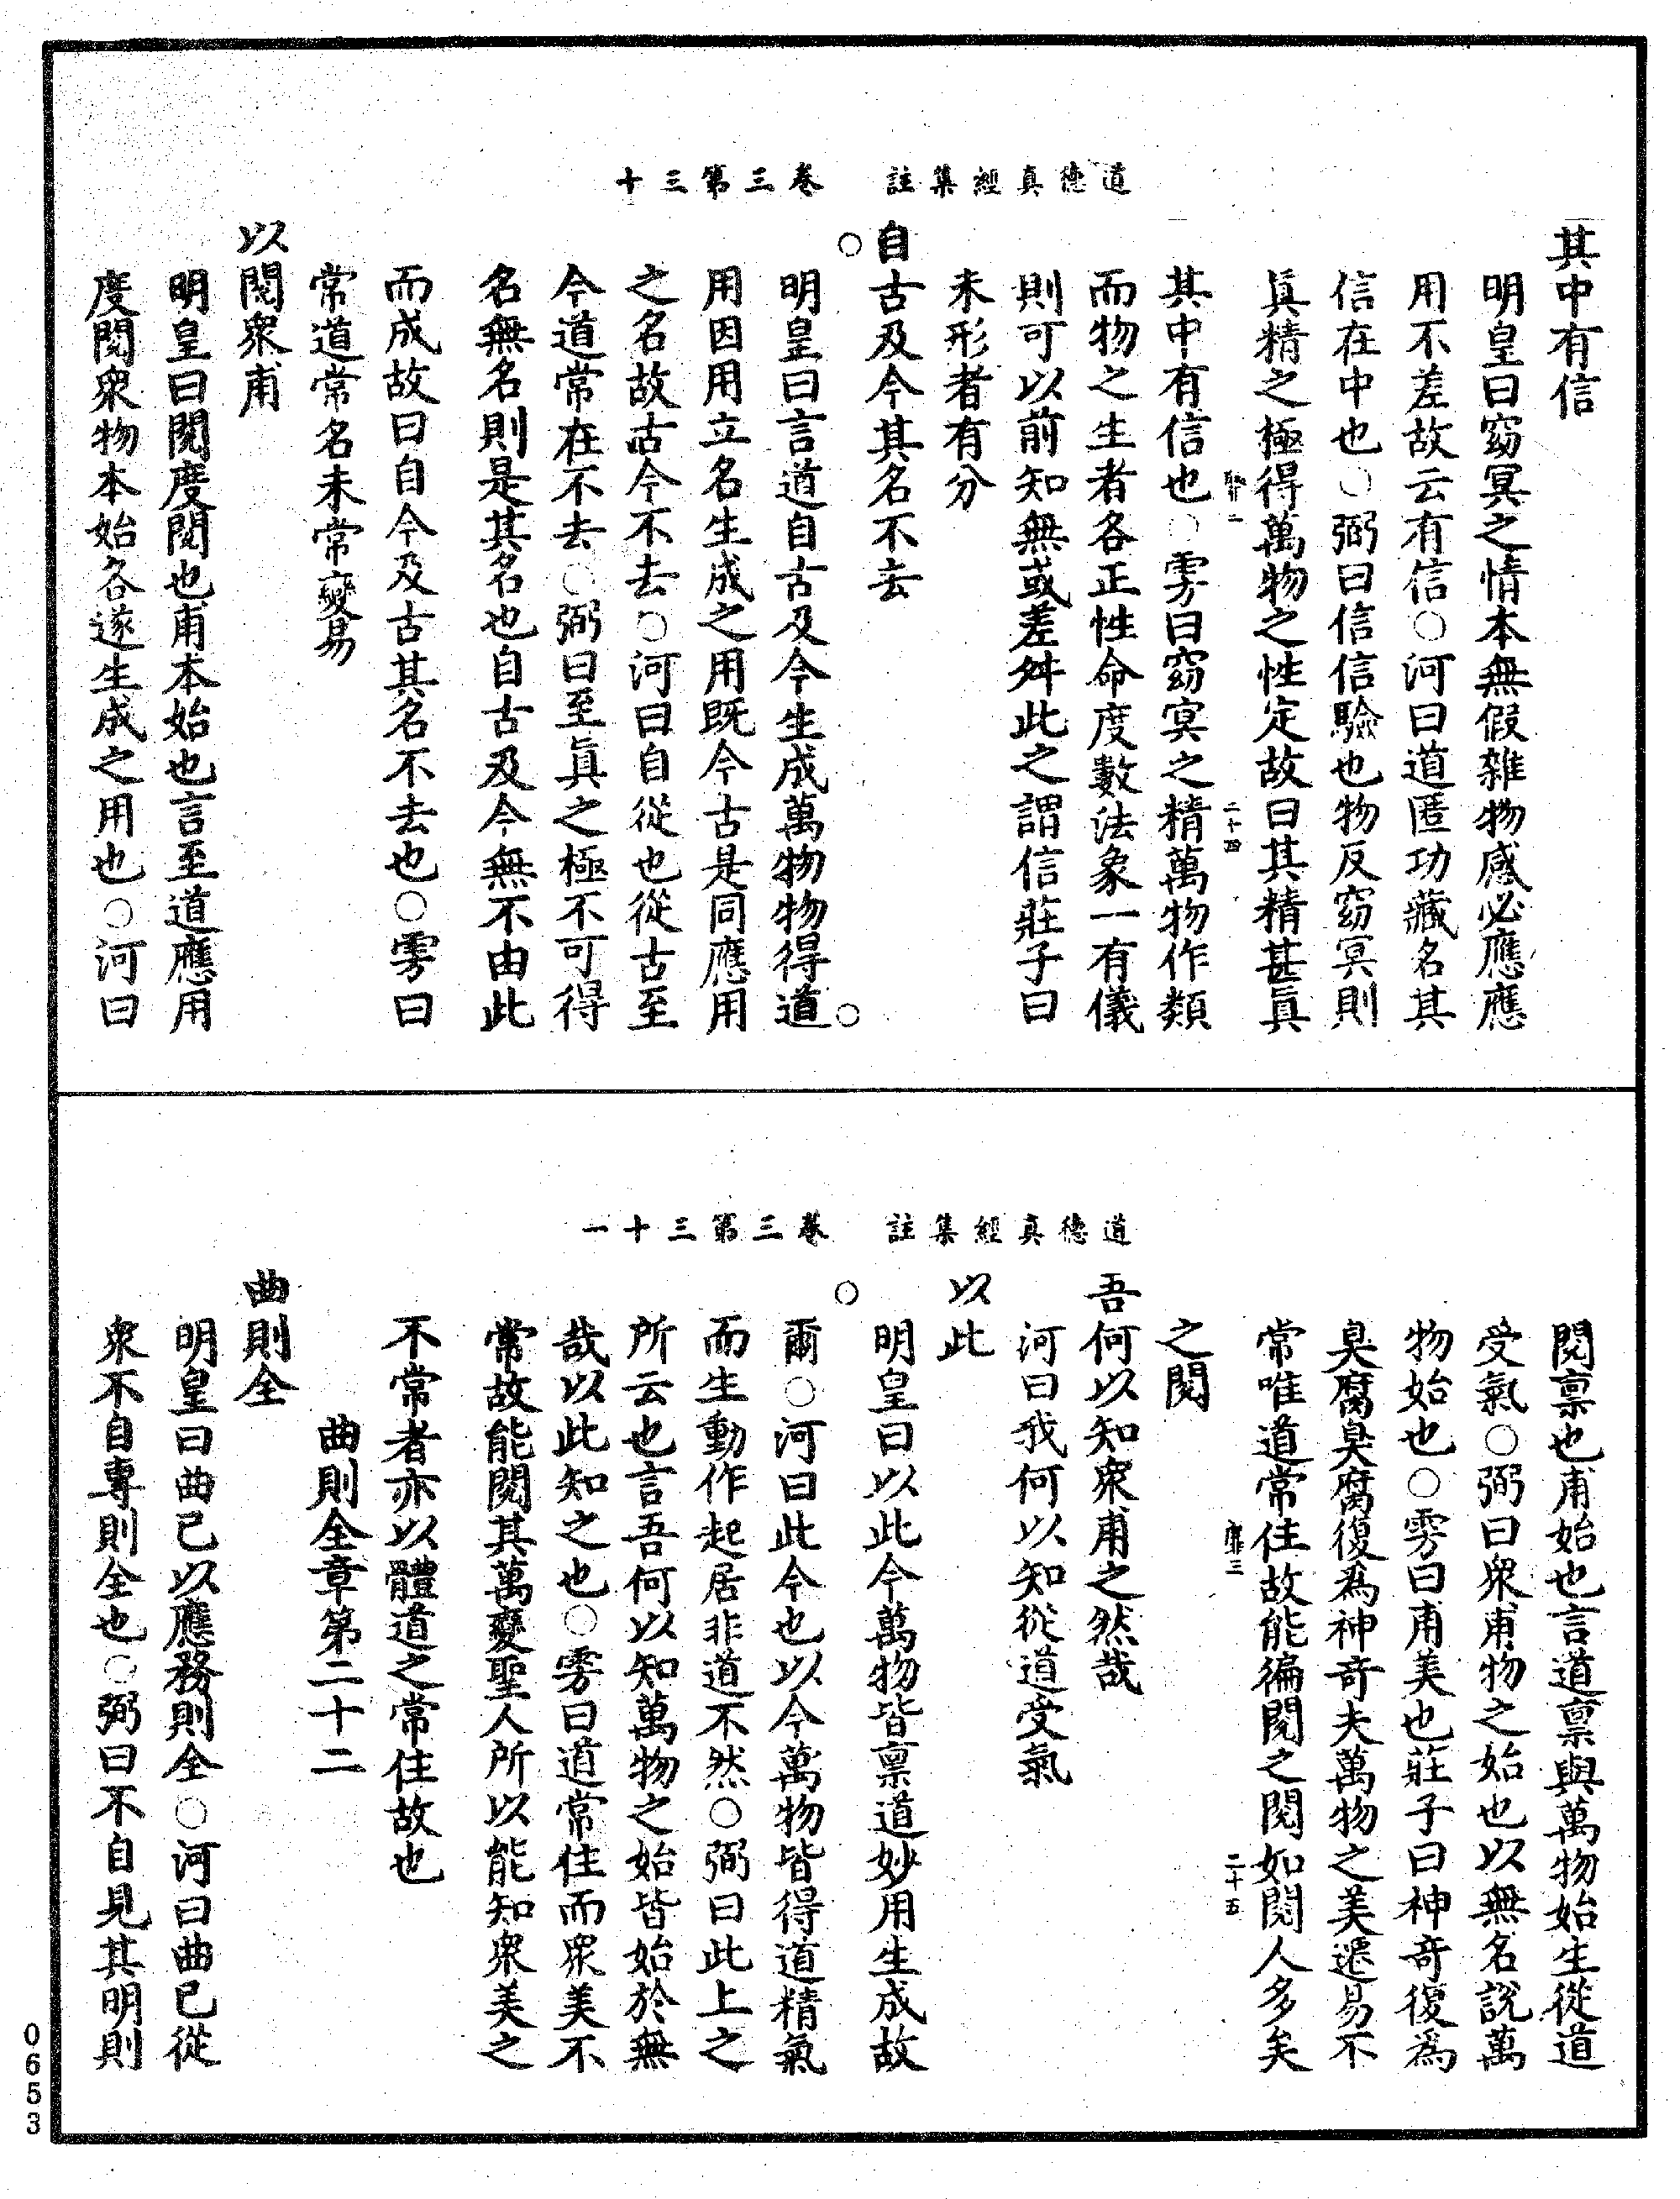 道德真經集註　卷三第三十
其中有信
明皇曰窈冥之情本無假雜物感必應應
用不差故云有信○河曰道匿功藏名其
信在中也○弼曰信信驗也物反窈冥則
真精之極得萬物之性定故曰其精甚真
二十四
其中有信也○雱曰窈冥之精萬物作類
而物之生者各正性命度數法象一有儀
則可以前知無或差舛此之謂信莊子曰
未形者有分
自古及今其名不去
○
○
明皇曰言道自古及今生成萬物物得道
用因用立名生成之用既今古是同應用
之名故古今不去○河曰自從也從古至
今道常在不去○弼曰至真之極不可得
名無名則是其名也自古及今無不由此
而成故曰自今及古其名不去也○雱曰
常道常名未常變易
以閱衆甫
明皇曰閱度閱也甫本始也言至道應用
度閱衆物本始各遂生成之用也○河曰
道德真經集註　卷三第三十一
閱稟也甫始也言道稟與萬物始生從道
受氣○弼曰衆甫物之始也以無名說萬
物始也○雱曰甫美也莊子曰神奇復爲
臭腐臭腐復爲神奇夫萬物之美遞易不
常唯道常住故能徧閱之閱如閱人多矣
二十五
之閱
吾何以知衆甫之然哉
河曰我何以知從道受氣
以此
明皇曰以此今萬物皆稟道妙用生成故
○
爾○河曰此今也以今萬物皆得道精氣
而生動作起居非道不然○弼曰此上之
所云也言吾何以知萬物之始皆始於無
哉以此知之也○雱曰道常住而衆美不
常故能閱其萬變聖人所以能知衆美之
不常者亦以體道之常住故也
曲則全章第二十二
曲則全
明皇曰曲己以應務則全○河曰曲己從
衆不自專則全也○弼曰不自見其明則
0653